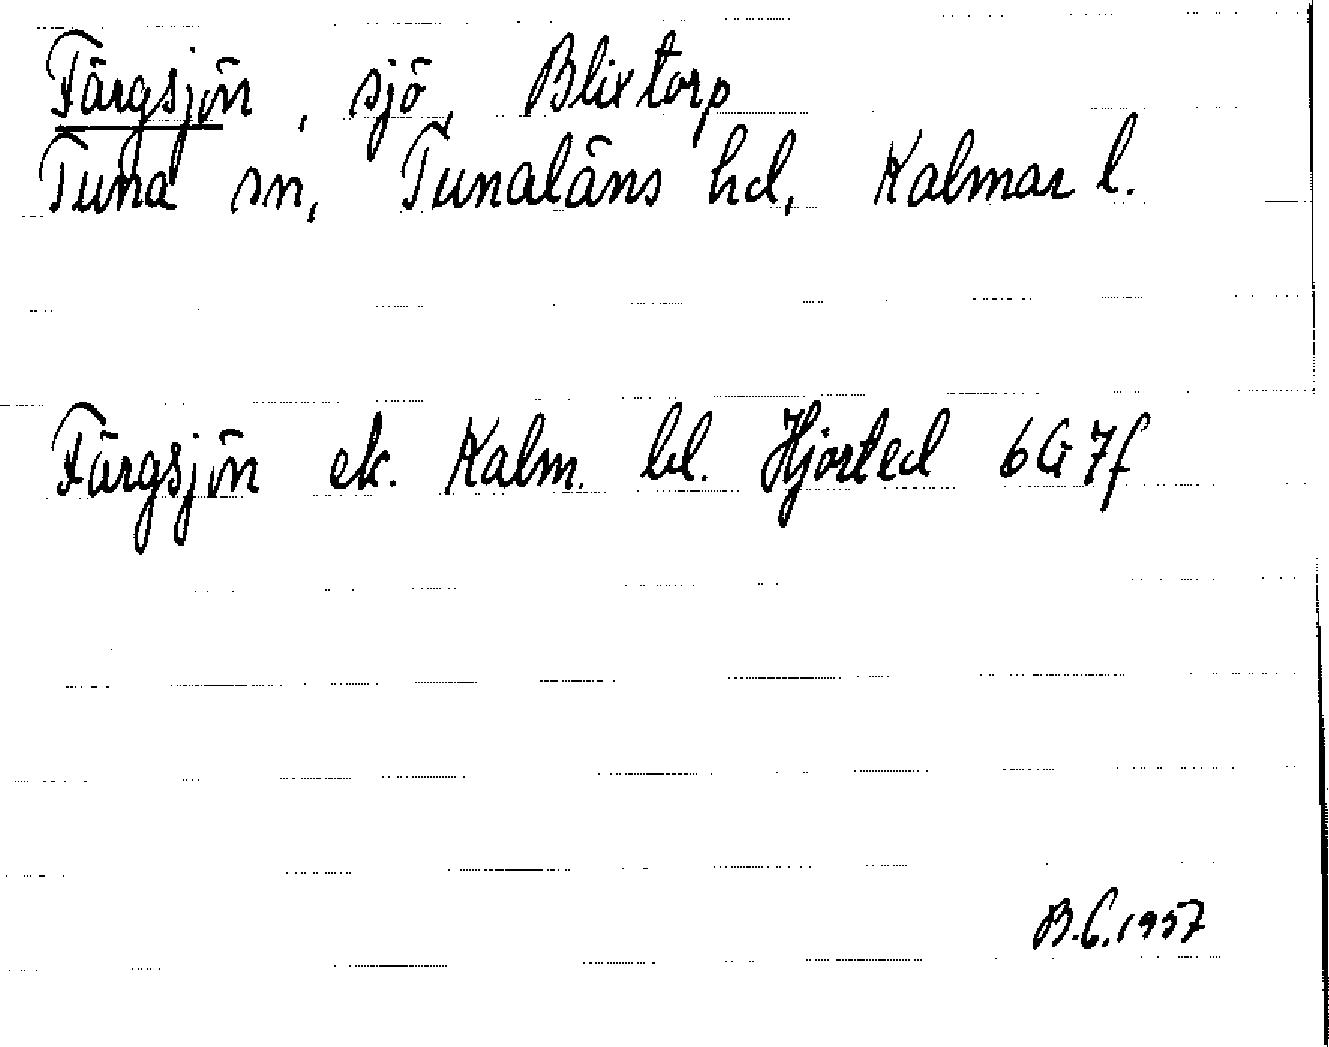 Färgsjön, sjö, Blixtorp
Tuna sn, Tunaläns hd, Kalmar l.
Färgsjön ek. Kalm. bl. Hjorted 6G7f
B.C. 1957